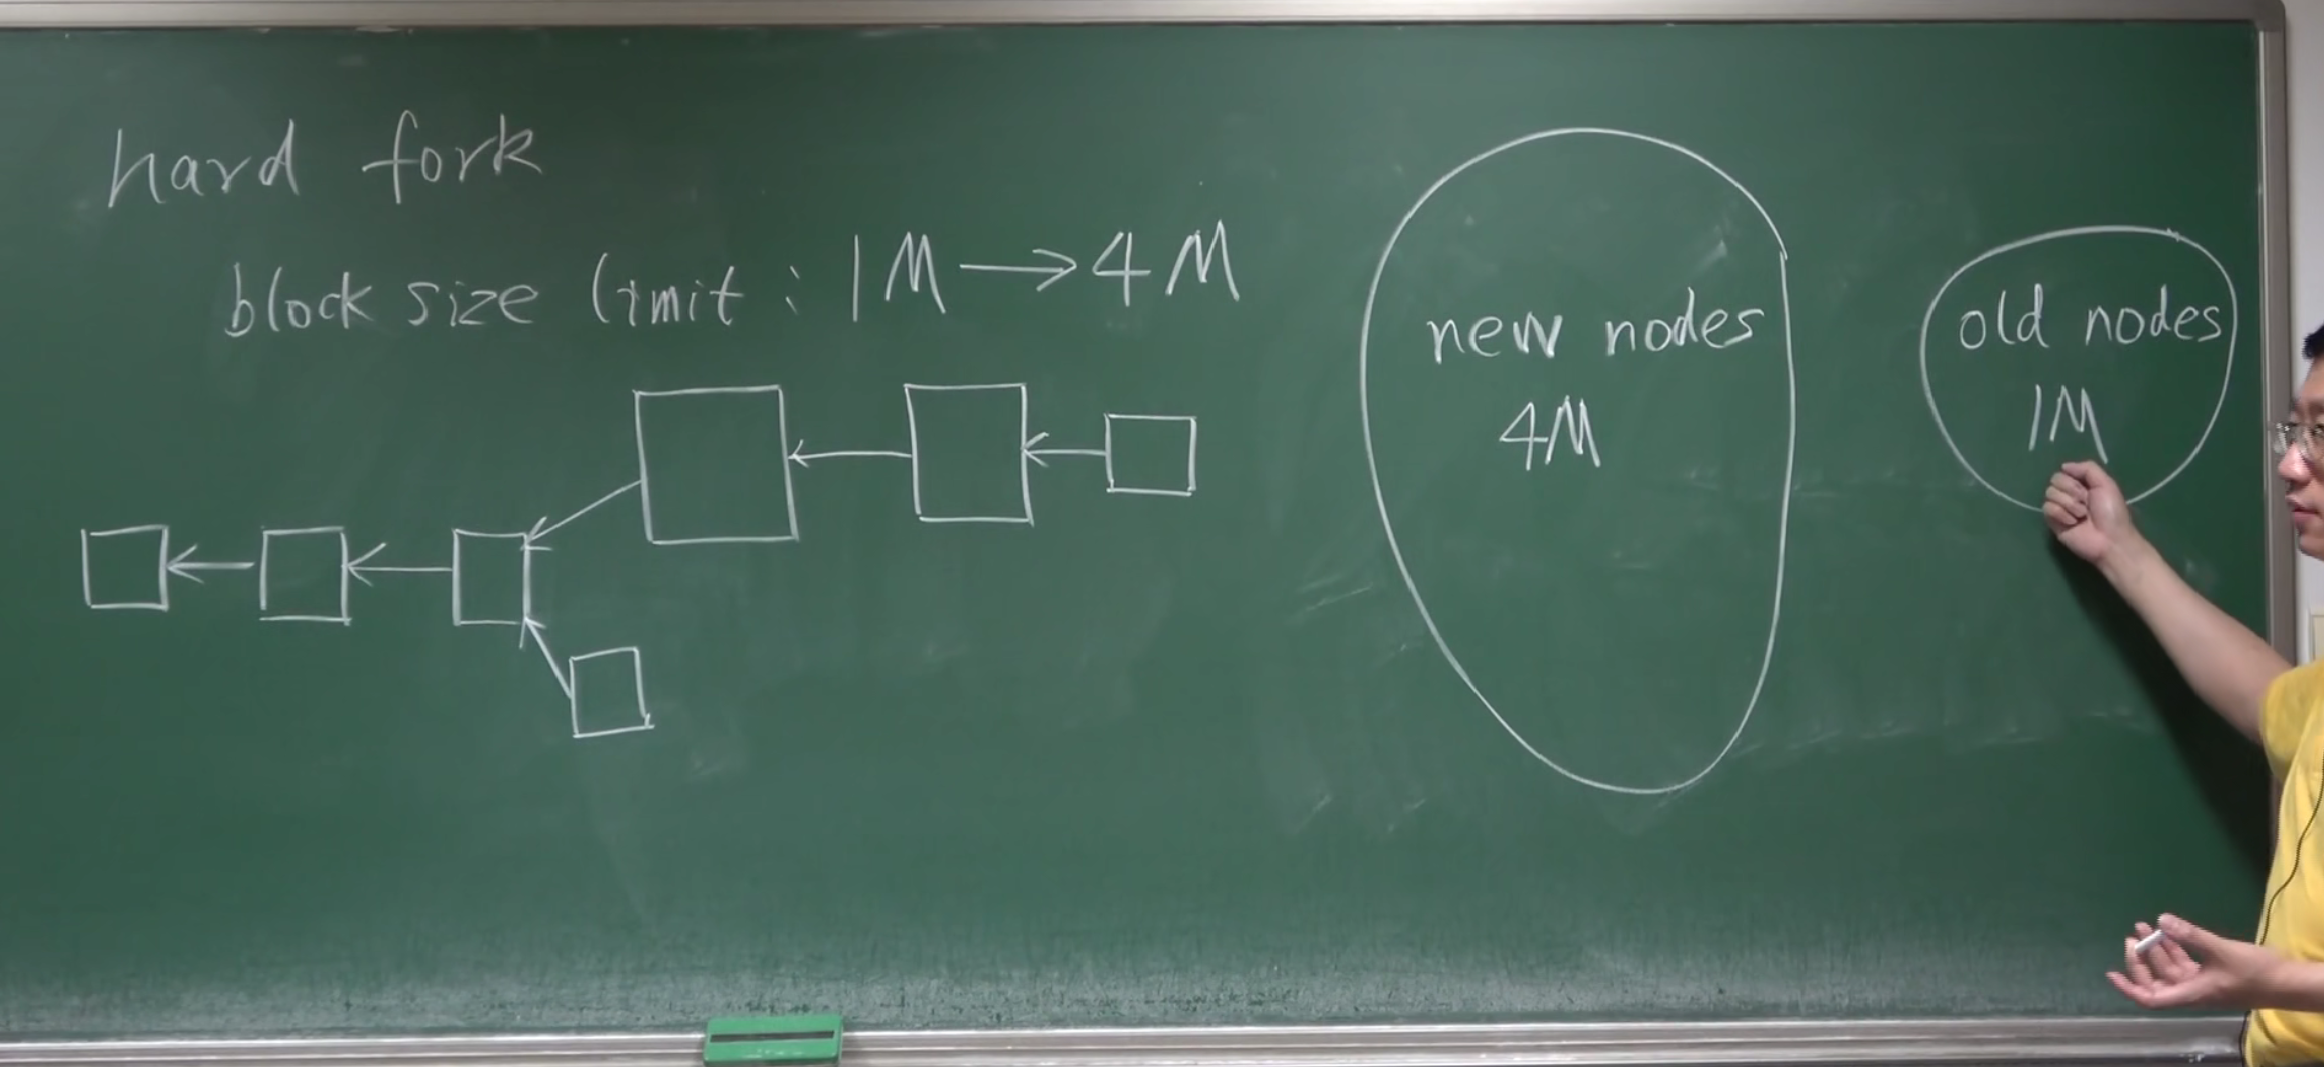 hard fork
block size limit : 1M → 4M
new nodes
4M
old nodes
1M